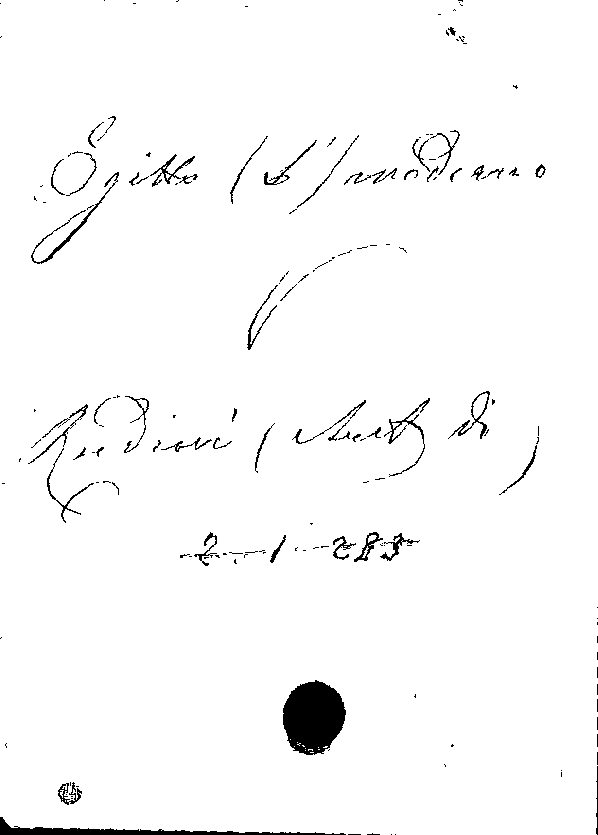 Egitto (L') moderno
V
Rudiovi (Ant. di)
2. 1 285